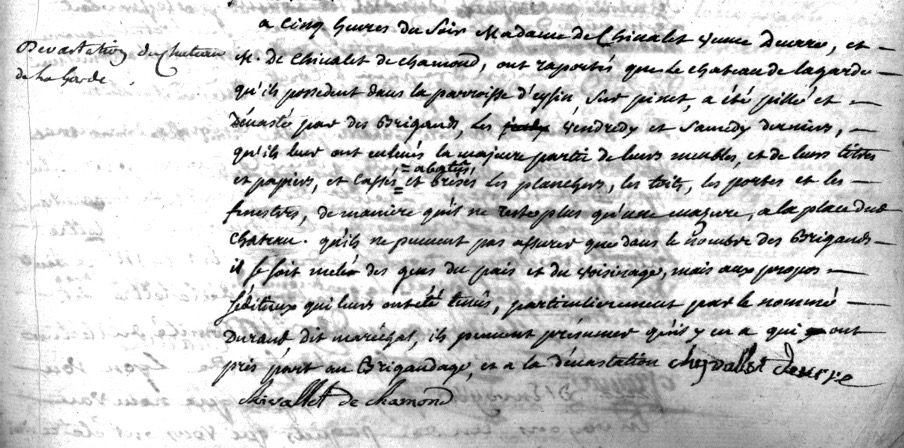 a cinq heures du soir Madame de Chivalet veuve Deurre, et
Devastation du Chateau
de la Garde
M. de Chivalet de chamond, ont raportés que le chateau de lagarde
qu'ils possedent dans la parroisse d'eysin sur pinet, a été pillé et
dévasté par des Brigands, les vendredy et samedy derniers,
qu'ils leur ont enlevés la majeure partie de leurs meubles, et de leurs titres
et papiers, et cassés = abatus, = et brisés les planchers, les toits, les portes et les
fenestres, de maniere qu'il ne reste plus qu'une mazure, a la place dud
chateau. qu'ils ne peuvent pas assurer que dans le nombre des Brigands
il se soit melé des gens du pais et du voisinage, mais aux propos
séditieux qui leurs ont été tenus, particulierement par le nommé
Durand dit maréchal, ils peuvent présumer qu'il y en a qui ont
pris part au Brigandage, et a la dévastation Chivallet Deurre
Chivallet de Chamond